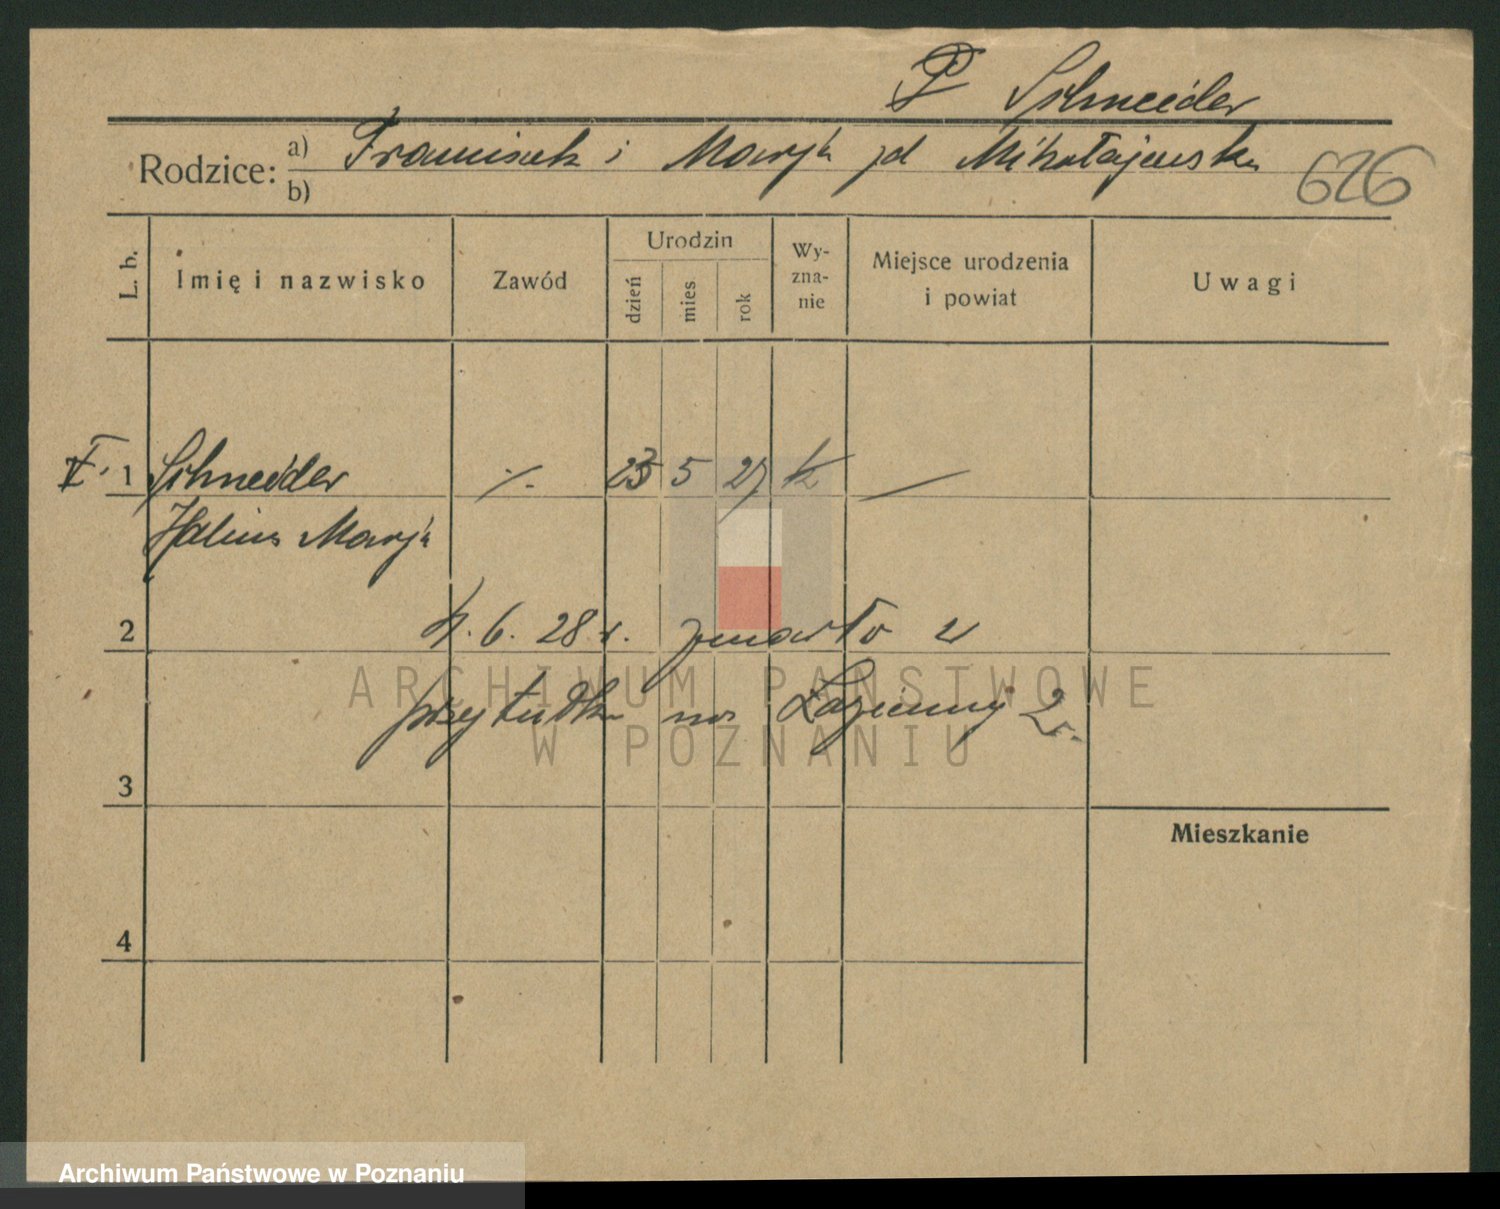 P Schneider
Rodzice: a) Franciszek i Marja zd Mikołajewska
b)
626
L. b.
Imię i nazwisko
Zawód
Urodzin
dzień
mies
rok
Wy-
zna-
nie
Miejsce urodzenia
i powiat
Uwagi
1 Schneider ·/· 23 5 27 k —
Halina Marja
2
4. 6. 28 r. zmarło w
przytułku na Łaziennej 2.
3
Mieszkanie
4
ARCHIWUM PAŃSTWOWE
W POZNANIU
Archiwum Państwowe w Poznaniu